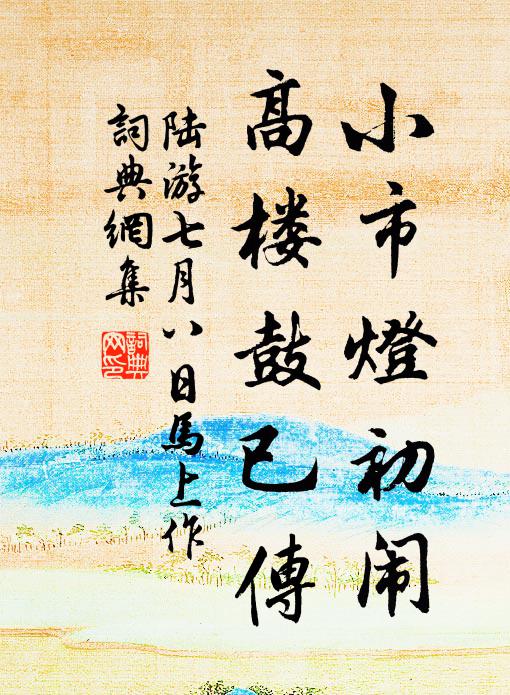 小市燈初闹
高楼鼓已傳
陆游七月八日馬上作
詞典網集
詞典网印